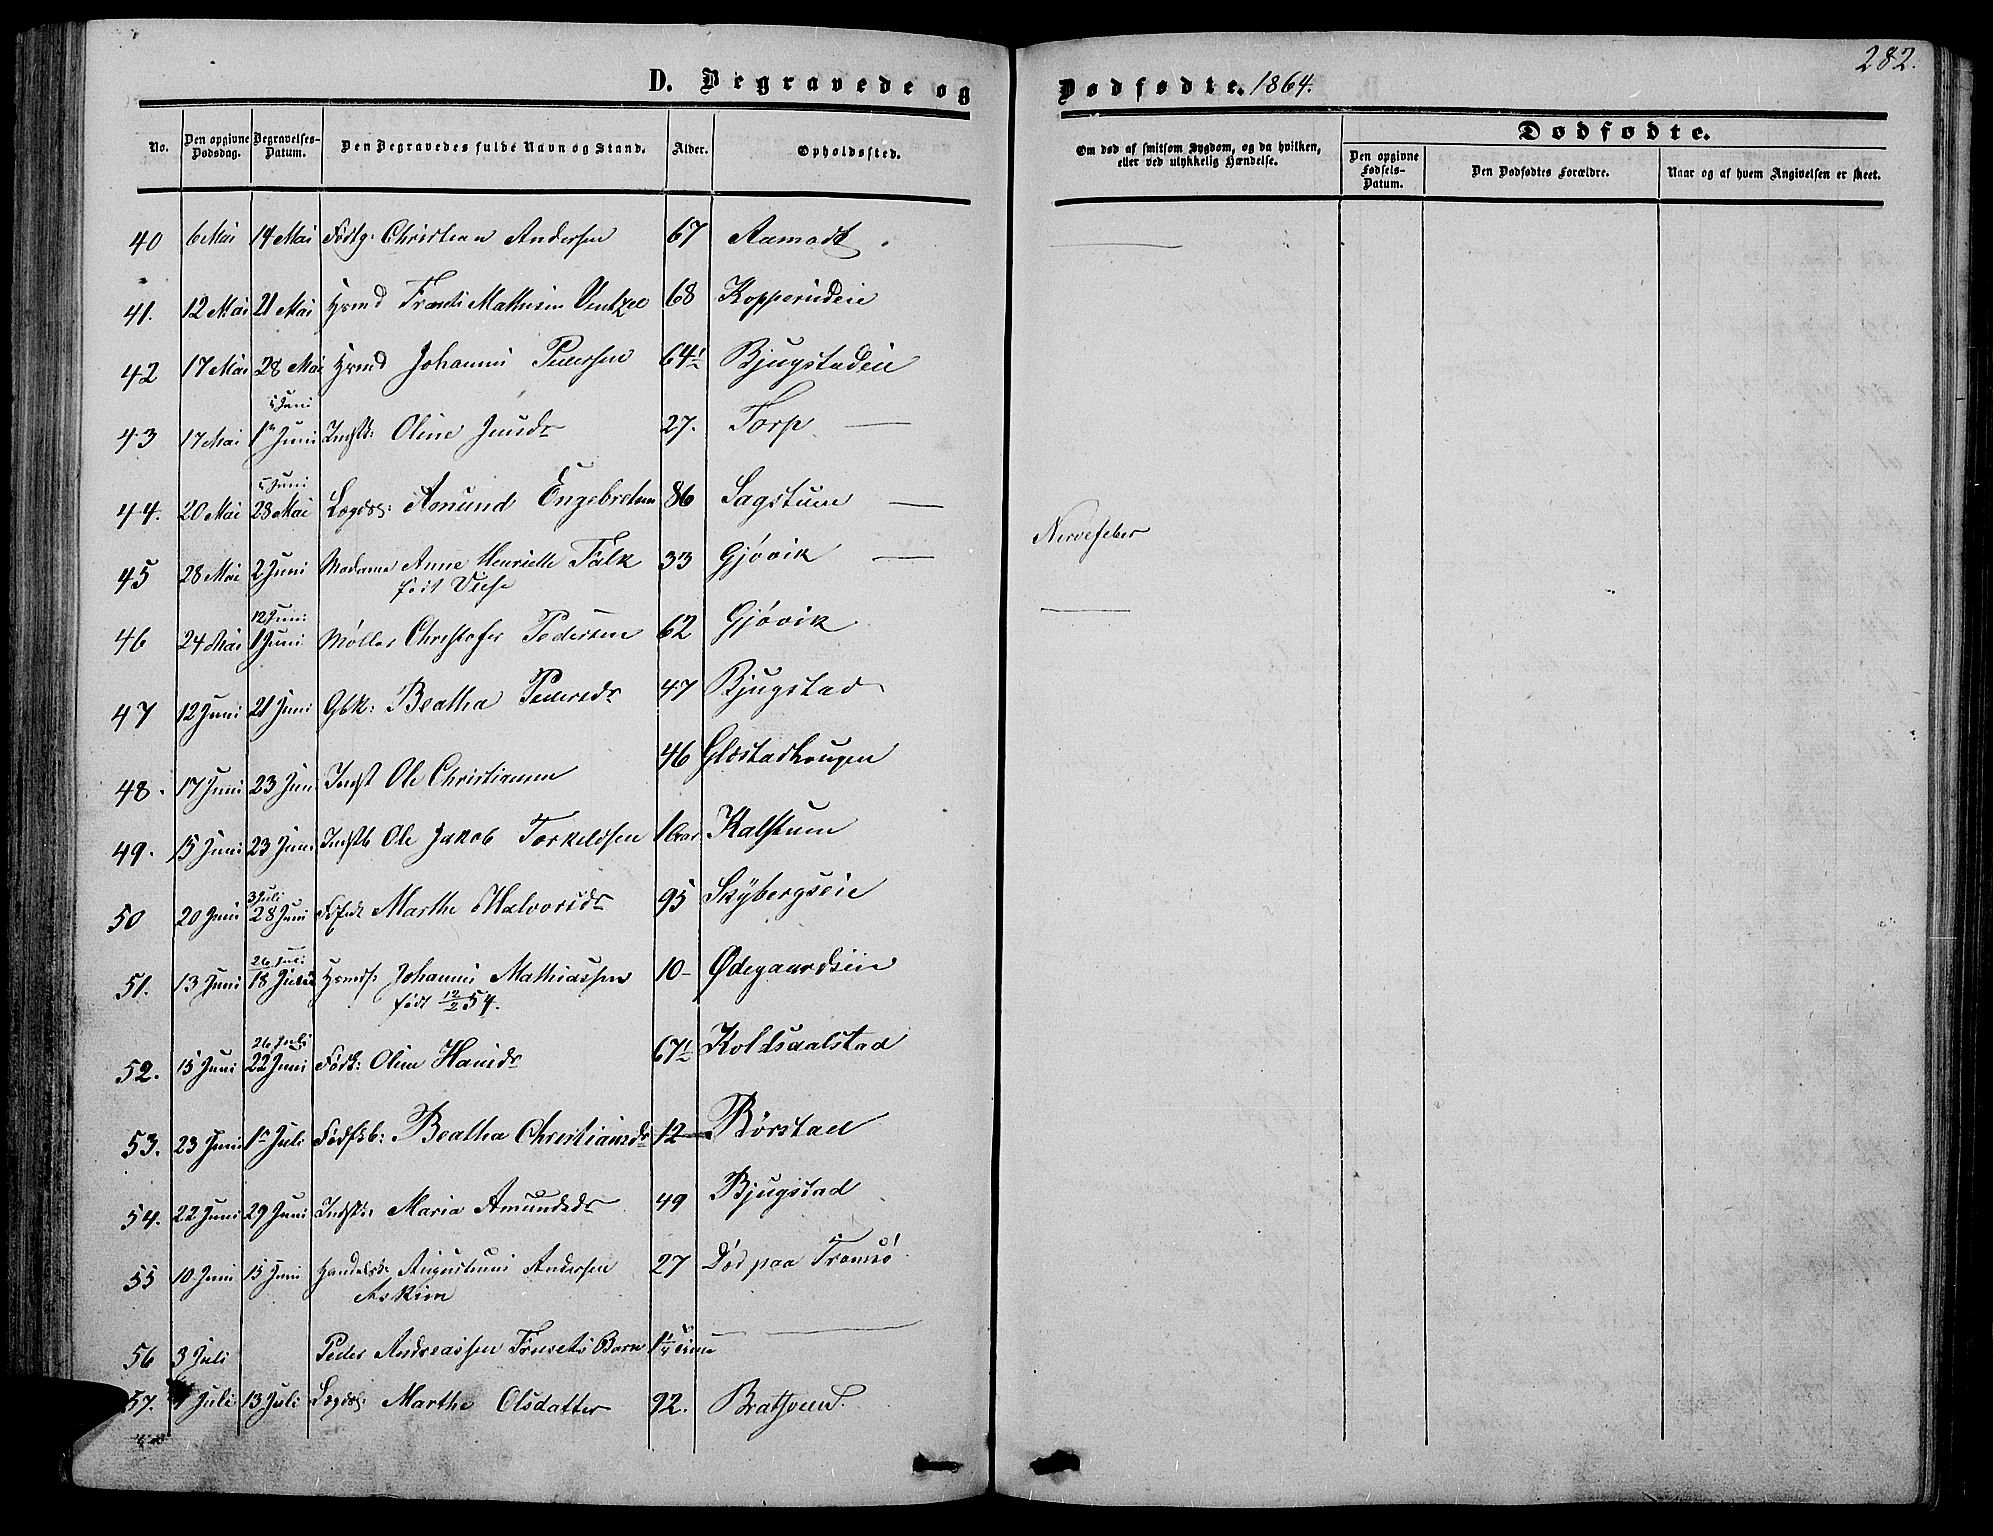 282.
D. Begravede og Dødfødte. 1864.
No. Den opgivne Dødsdag. Begravelses-Datum. Den Begravedes fulde Navn og Stand. Alder. Opholdssted. Om død af smitsom Sygdom, og da hvilken, eller ved ulykkelig Hændelse. Dødfødte.
Den opgivne Fødsels-Datum. Den Dødfødtes Forældre. Naar og af hvem Angivelsen er skeet.
40 6 Mai 14 Mai Christian Andersen 67 Aamodt
41. 12 Mai 21 Mai Hrmd Frants Mathisen Ventzel 68 Kopperudeie
42 17 Mai 28 Mai Hrmd Johannes Pedersen 64½ Bjugstadeie
5 Juni
43 17 Mai 1 Juni Indstk: Oline Jensdr 27. Torp —
5 Juni
44. 20 Mai 28 Mai Lægdsl: Amund Engebretsen 86 Sagstuen —
45 28 Mai 2 Juni Madame Anne Henriette Falk 33 Gjøvik — Nervefeber
født
12 Juni
46 24 Mai 1 Juni Møller Christofer Pedersen 62 Gjøvik
47 12 Juni 21 Juni Gbk: Beatha Pedersdr 47 Bjugstad
48. 17 Juni 23 Juni Indst Ole Christiansen 46 Gløstadhaugen
49. 15 Juni 23 Juni Indstb Ole Jakob Torkeldsen Kalstuen
3 Juli
50 20 Juni 28 Juni Marthe Halvorsdr 95 Skybergseie
26 Juli
51. 13 Juni 18 Hrmds: Johannes Mathiassen 10 – Ødegaardseie
født 12/2 54.
52. 15 Juni 22 Juni Fødk: Oline Hansdr 67½ Koldsaalstad
53. 23 Juni 1 Juli Beatha Christiansdr 12 – Børstad
54. 22 Juni 29 Juni Indstk: Maria Amundsdr 49 Bjugstad
55 10 Juni 15 Juni Handelsb: Augustinus Andersen 27 Død paa Tromsø
Askim
56 3 Juli Peder Andreassen Barn
57. Juli 13 Juli Lægdsl: Marthe Olsdatter 92.